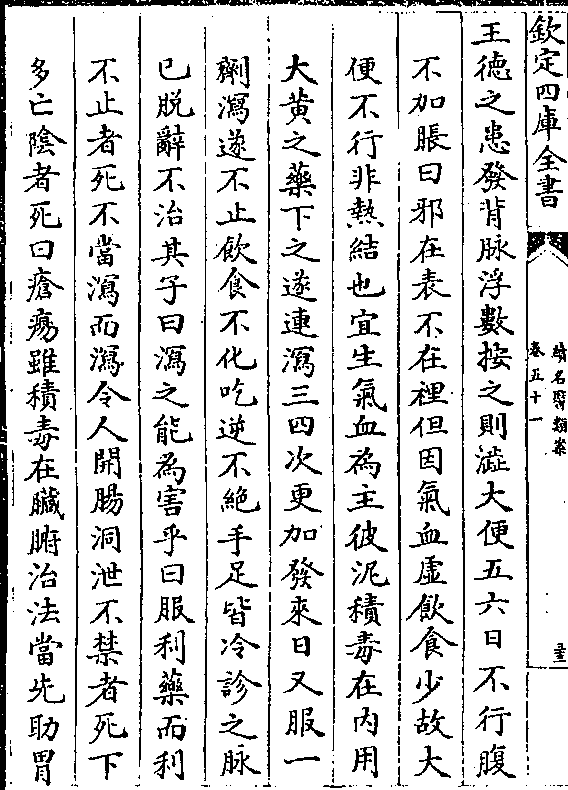 欽定四庫全書
續名醫類案
卷五十一
王德之患發背脉浮數按之則澁大便五六日不行腹
不加脹曰邪在表不在裡但因氣血虛飲食少故大
便不行非熱結也宜生氣血為主彼泥積毒在内用
大黄之藥下之遂連瀉三四次更加發來日又服一
劑瀉遂不止飲食不化吃逆不絶手足皆冷診之脉
已脱辭不治其子曰瀉之能為害乎曰服利藥而利
不止者死不當瀉而瀉令人開腸洞泄不禁者死下
多亡陰者死曰瘡瘍雖積毒在臟腑治法當先助胃